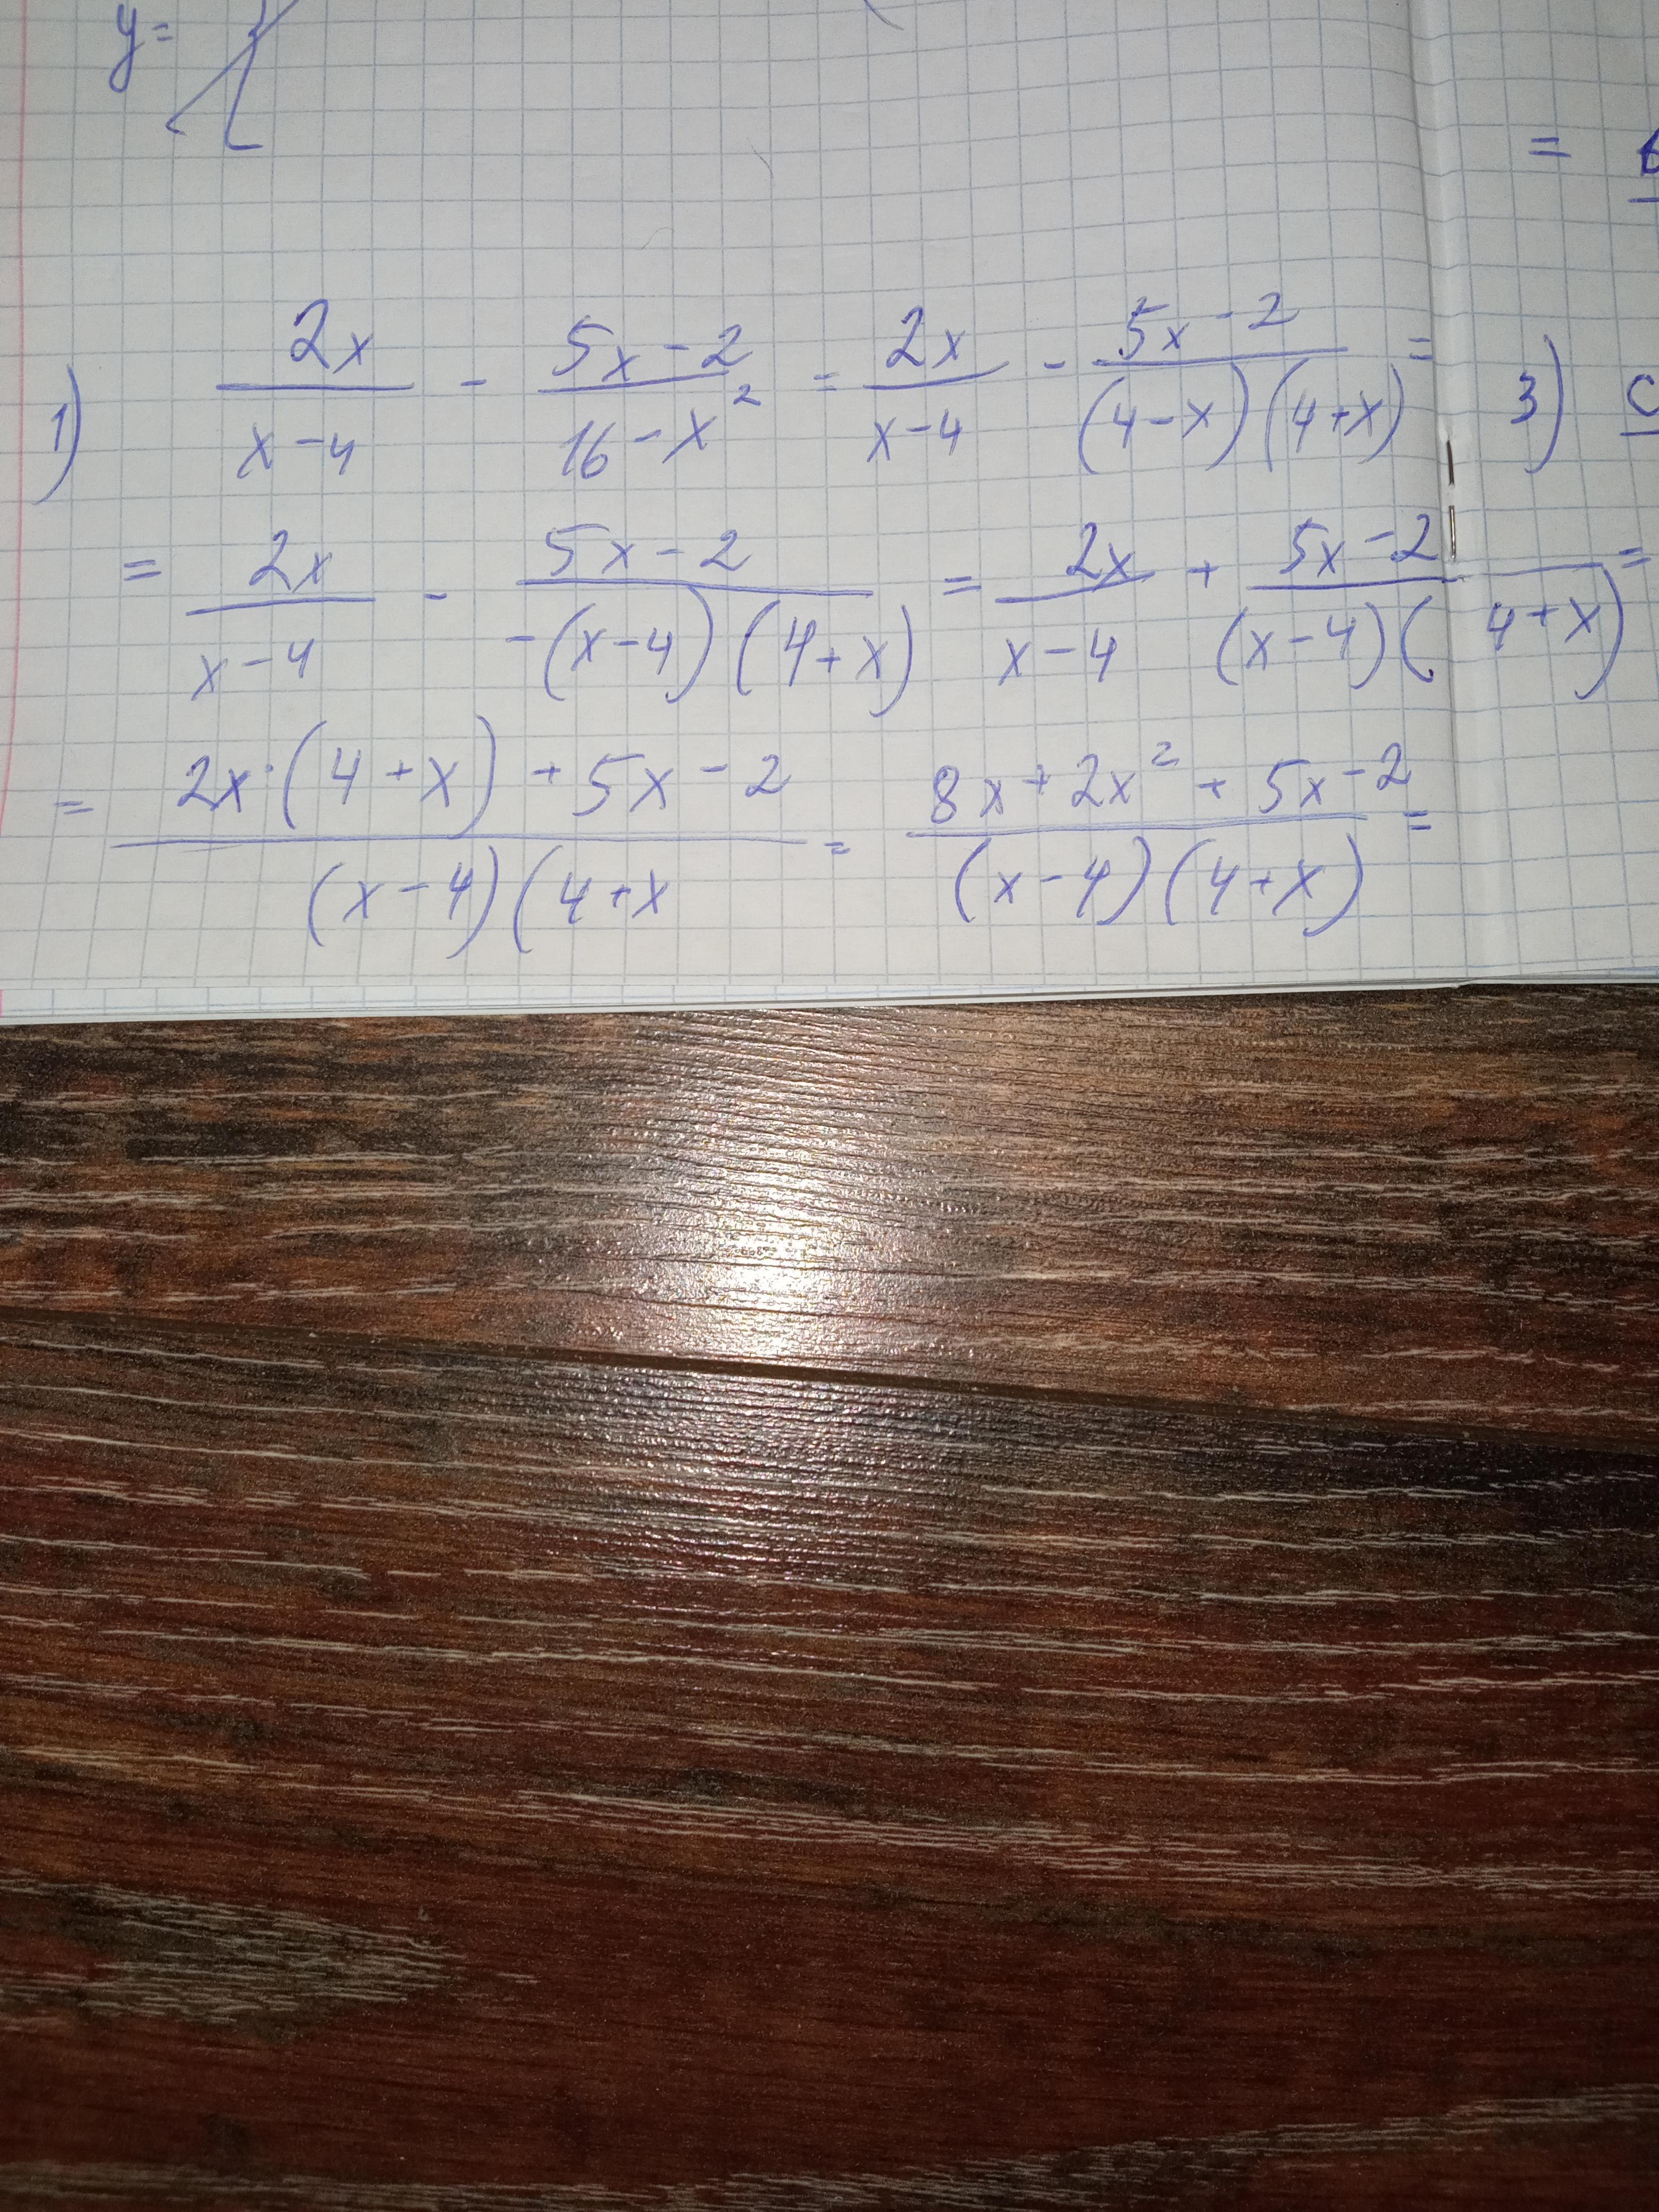 y=
=
1) 2x/(x-4) - (5x-2)/(16-x²) = 2x/(x-4) - (5x-2)/((4-x)(4+x)) =
3) c
= 2x/(x-4) - (5x-2)/(-(x-4)(4+x)) = 2x/(x-4) + (5x-2)/((x-4)(4+x)) =
= (2x·(4+x)+5x-2)/((x-4)(4+x) = (8x+2x²+5x-2)/((x-4)(4+x)) =